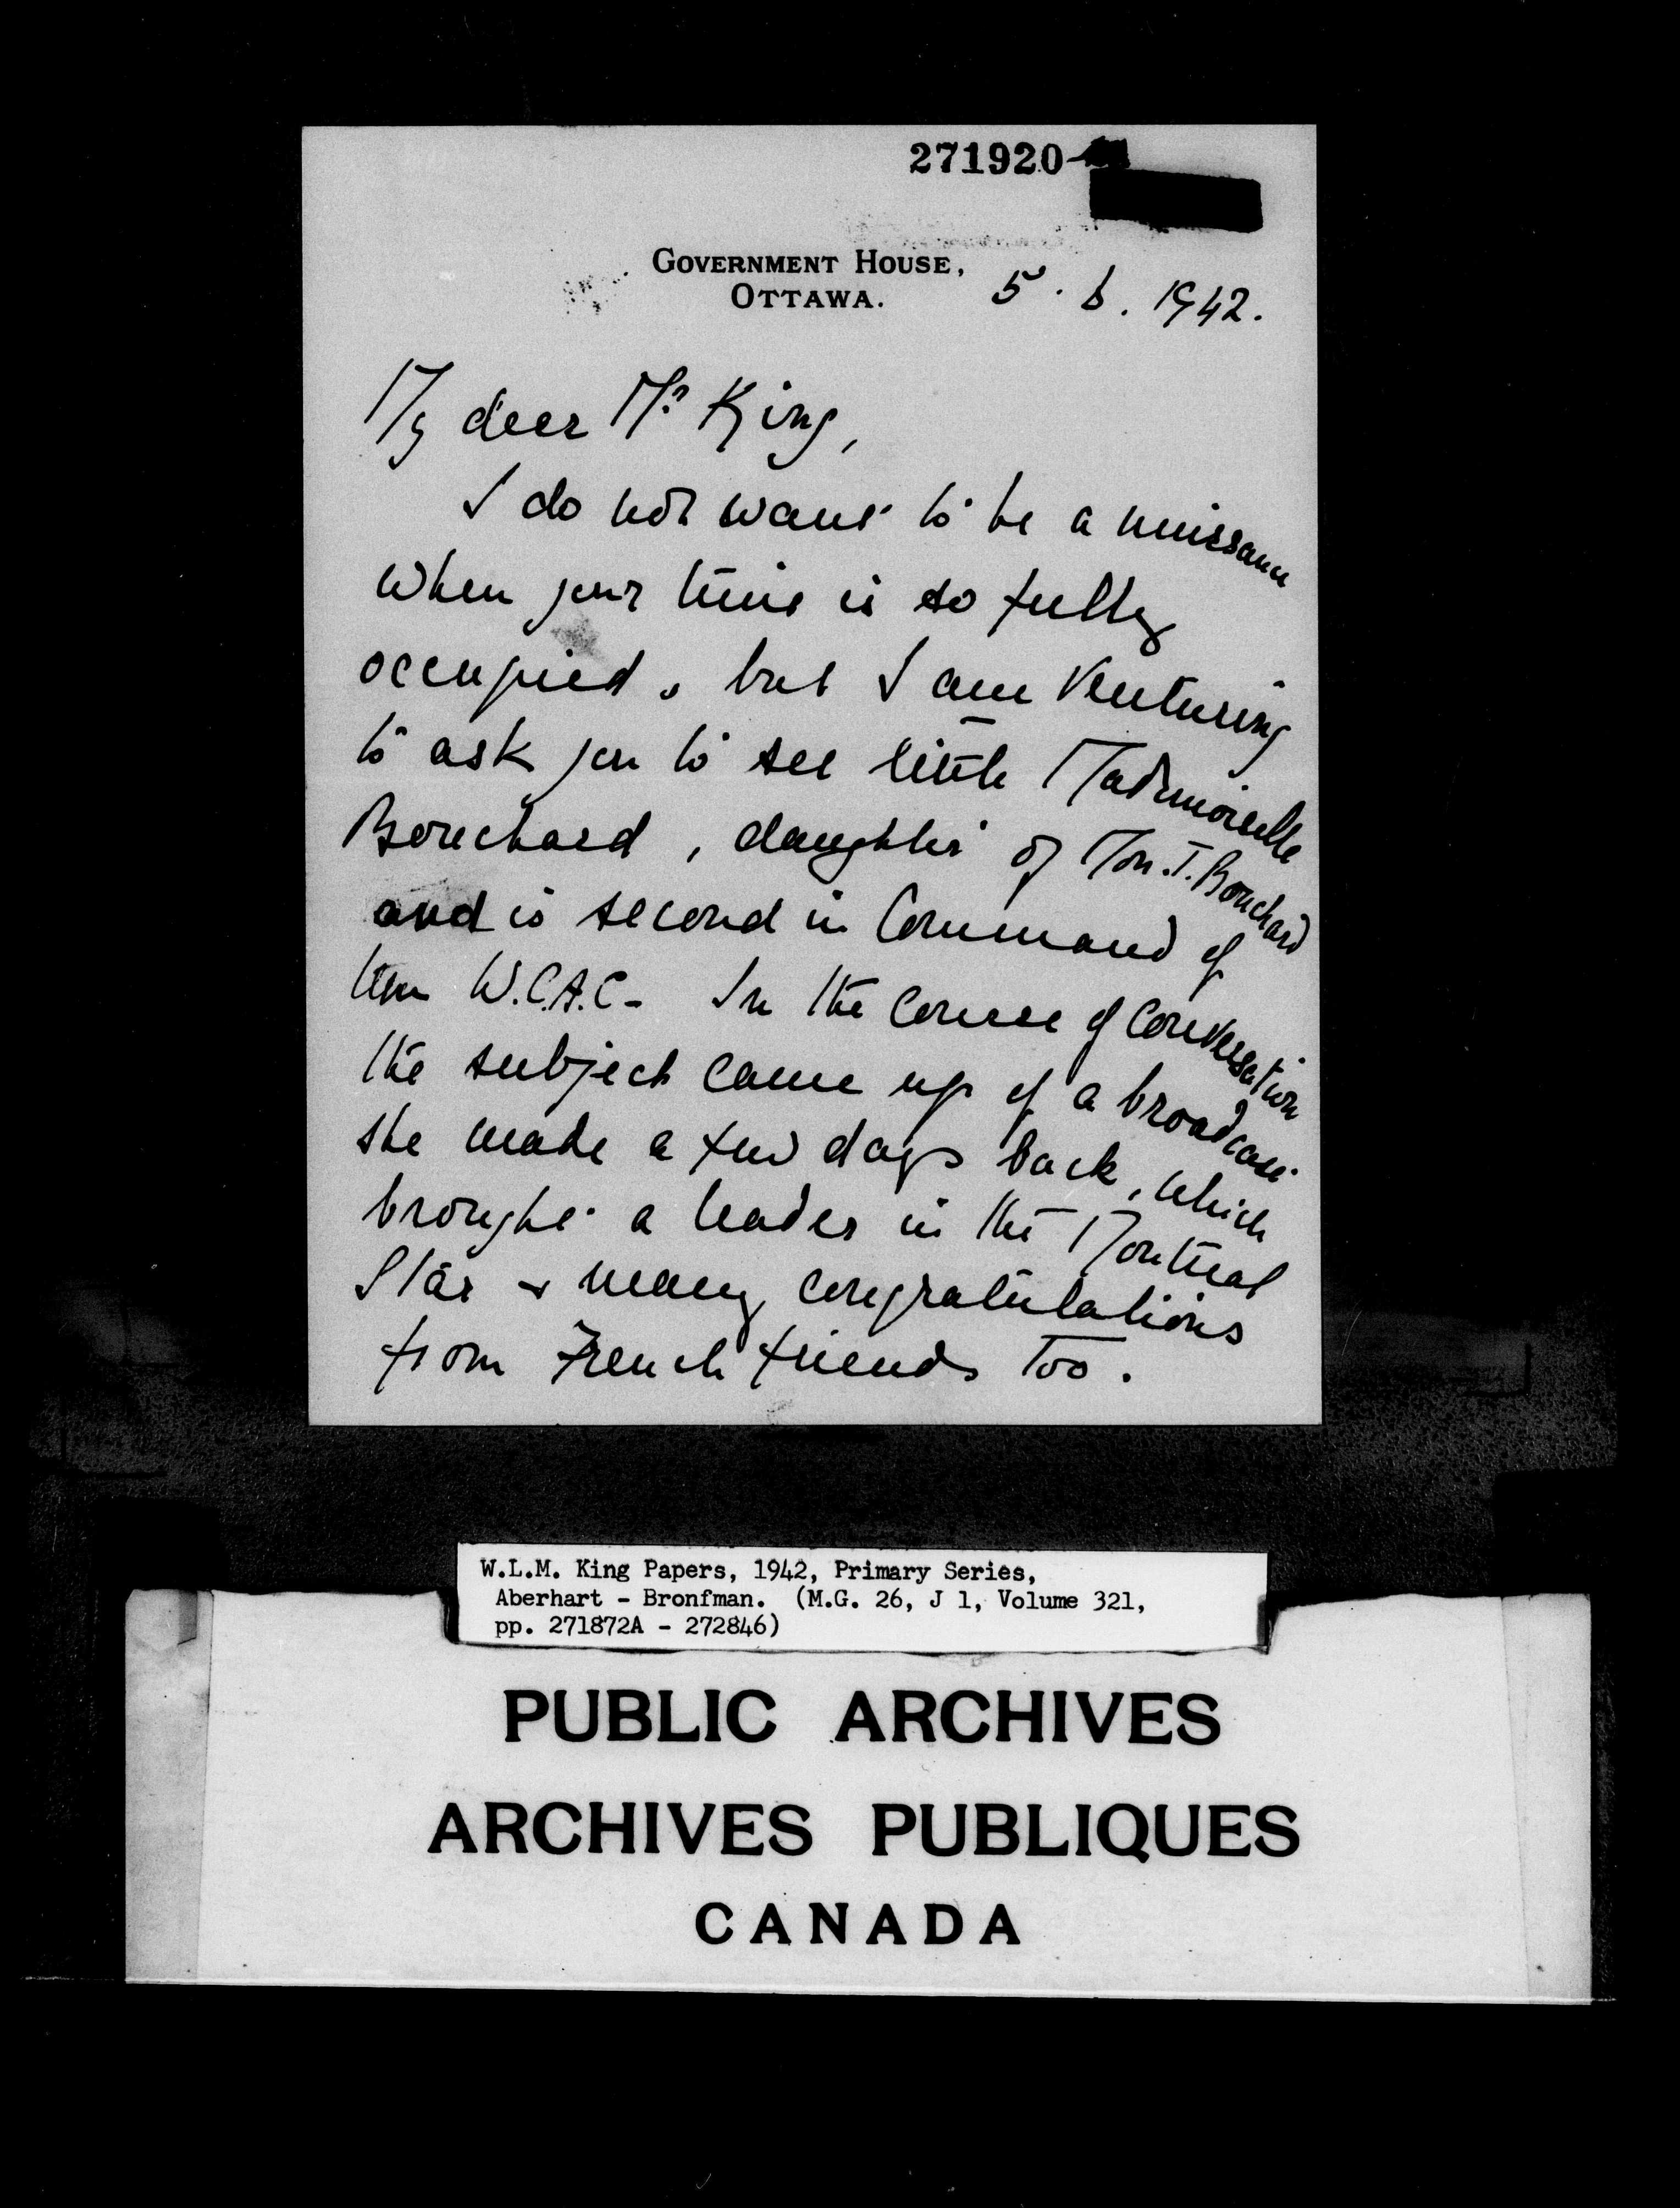 271920
GOVERNMENT HOUSE,
OTTAWA.
5. 6. 1942.
My dear Mr King,
I do not want to be a nuissance
when your time is so fully
occupied, but I am venturing
to ask you to see little Mademoiselle
Bouchard, daughter of Mon. T. Bouchard
and is second in Command of
the W.C.A.C. In the course of conversation
the subject came up of a broadcast
she made a few days back, which
brought a leader in the Montreal
Star & many congratulations
from French friends too.
W.L.M. King Papers, 1942, Primary Series,
Aberhart - Bronfman. (M.G. 26, J 1, Volume 321,
pp. 271872A - 272846)
PUBLIC ARCHIVES
ARCHIVES PUBLIQUES
CANADA